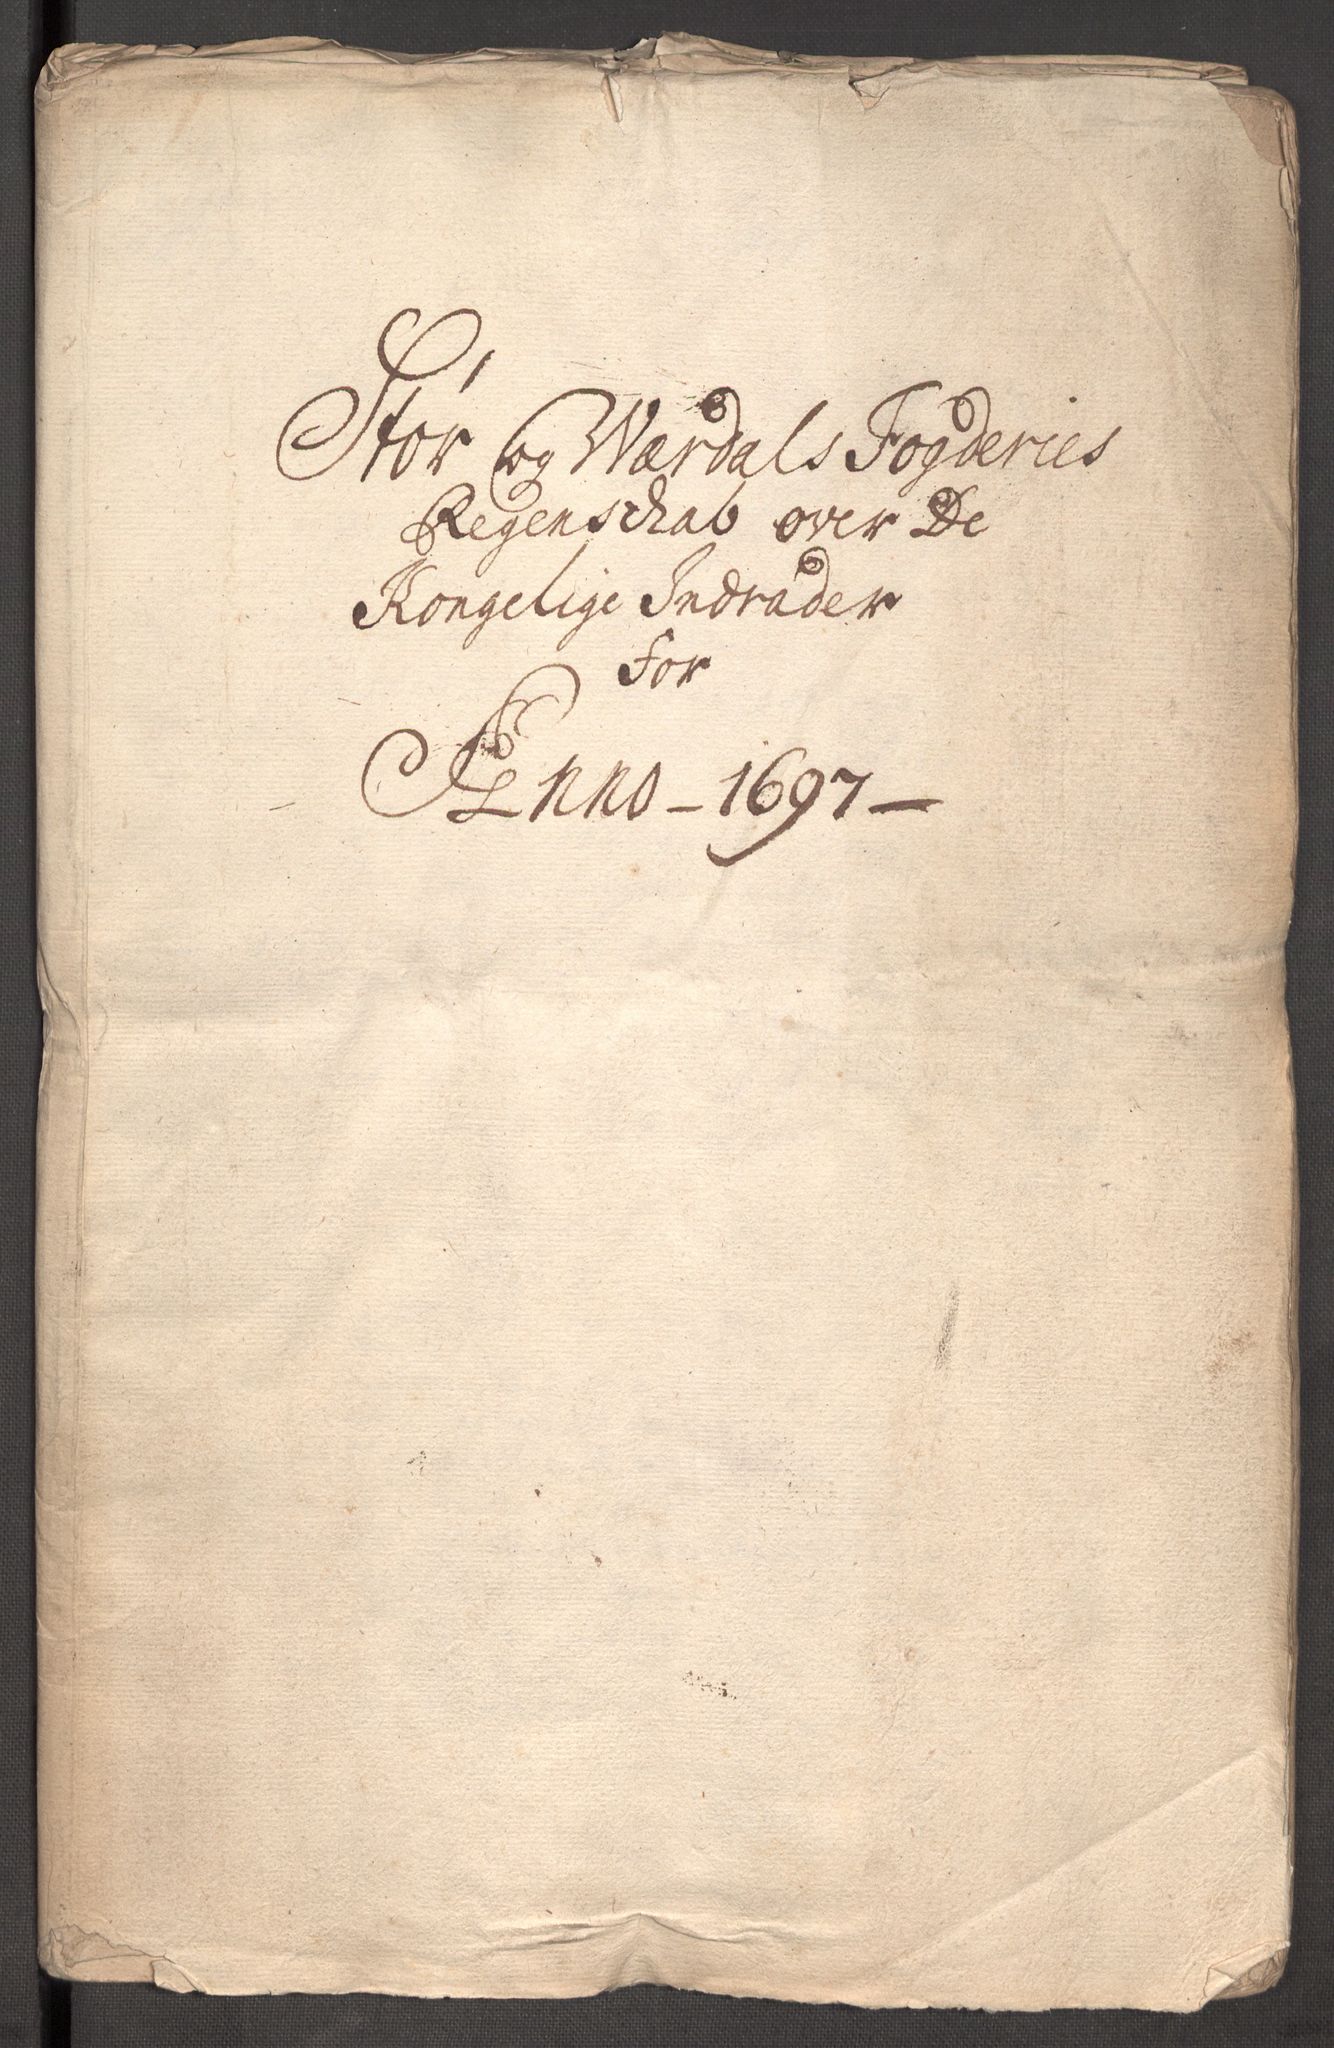 Stør og Wærdals Fogderies
Regenschab over De
Kongelige Indråder
for
Anno - 1697 -